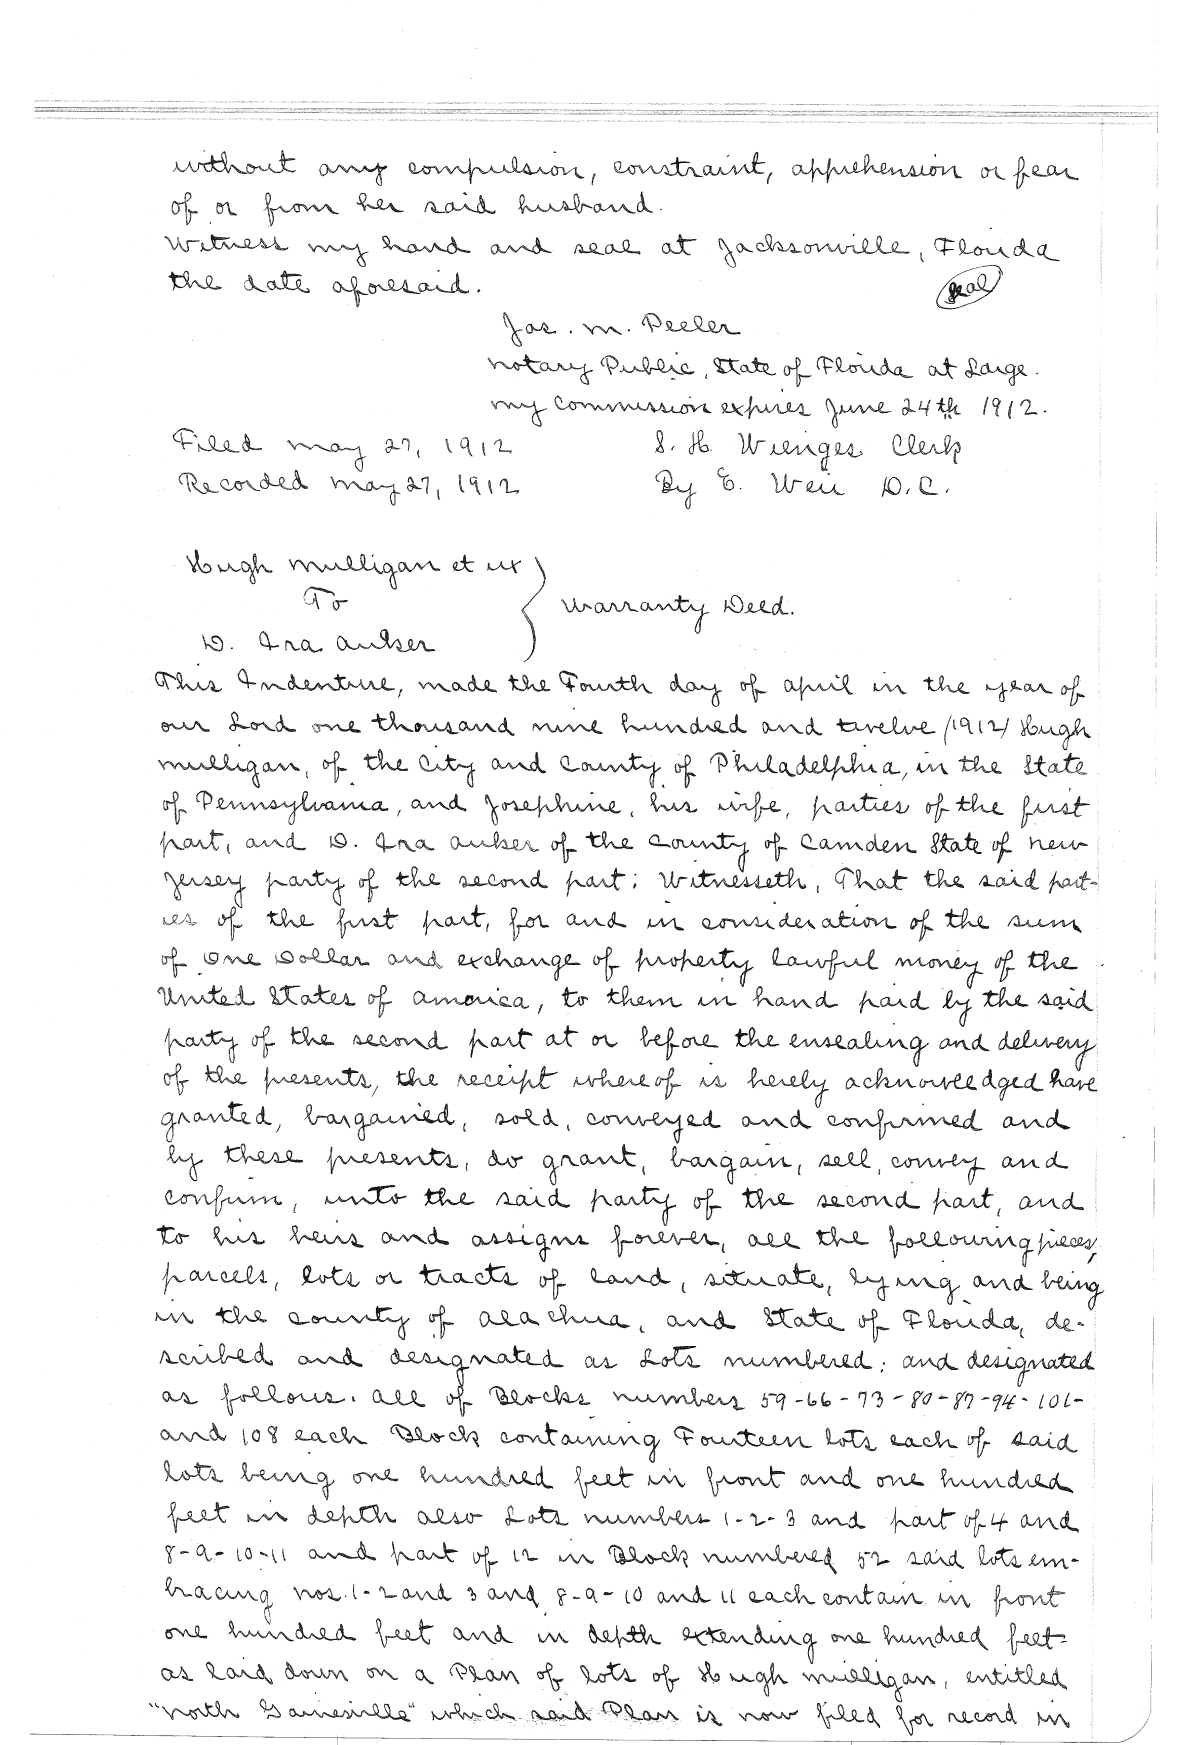 without any compulsion, constraint, apprehension or fear
of or from her said husband.
Witness my hand and seal at Jacksonville, Florida
the date aforesaid.
seal
Jas. M. Peeler
Notary Public, State of Florida at Large.
My Commission expires June 24th 1912.
Filed May 27, 1912 S. H. Wienges Clerk
Recorded May 27, 1912 By E. Weir D.C.
Hugh Mulligan et ux
To
Warranty Deed.
D. Ira Auker
This Indenture, made the Fourth day of April in the year of
our Lord one thousand nine hundred and twelve (1912) Hugh
Mulligan, of the City and County of Philadelphia, in the State
of Pennsylvania, and Josephine, his wife, parties of the first
part, and D. Ira Auker of the County of Camden State of New
Jersey party of the second part; Witnesseth, That the said part-
ies of the first part, for and in consideration of the sum
of One Dollar and exchange of property lawful money of the
United States of America, to them in hand paid by the said
party of the second part at or before the ensealing and delivery
of the presents, the receipt whereof is hereby acknowledged have
granted, bargained, sold, conveyed and confirmed and
by these presents, do grant, bargain, sell, convey and
confirm, unto the said party of the second part, and
to his heirs and assigns forever, all the following pieces,
parcels, lots or tracts of land, situate, lying and being
in the county of Alachua, and State of Florida, de-
scribed and designated as Lots numbered; and designated
as follows. All of Blocks numbers 59-66-73-80-87-94-101-
and 108 each Block containing Fourteen lots each of said
lots being one hundred feet in front and one hundred
feet in depth also Lots numbers 1-2-3 and part of 4 and
8-9-10-11 and part of 12 in Block numbered 52 said lots em-
bracing nos. 1-2 and 3 and 8-9-10 and 11 each contain in front
one hundred feet and in depth extending one hundred feet
as laid down on a Plan of lots of Hugh Mulligan, entitled
"North Gainesville" which said Plan is now filed for record in